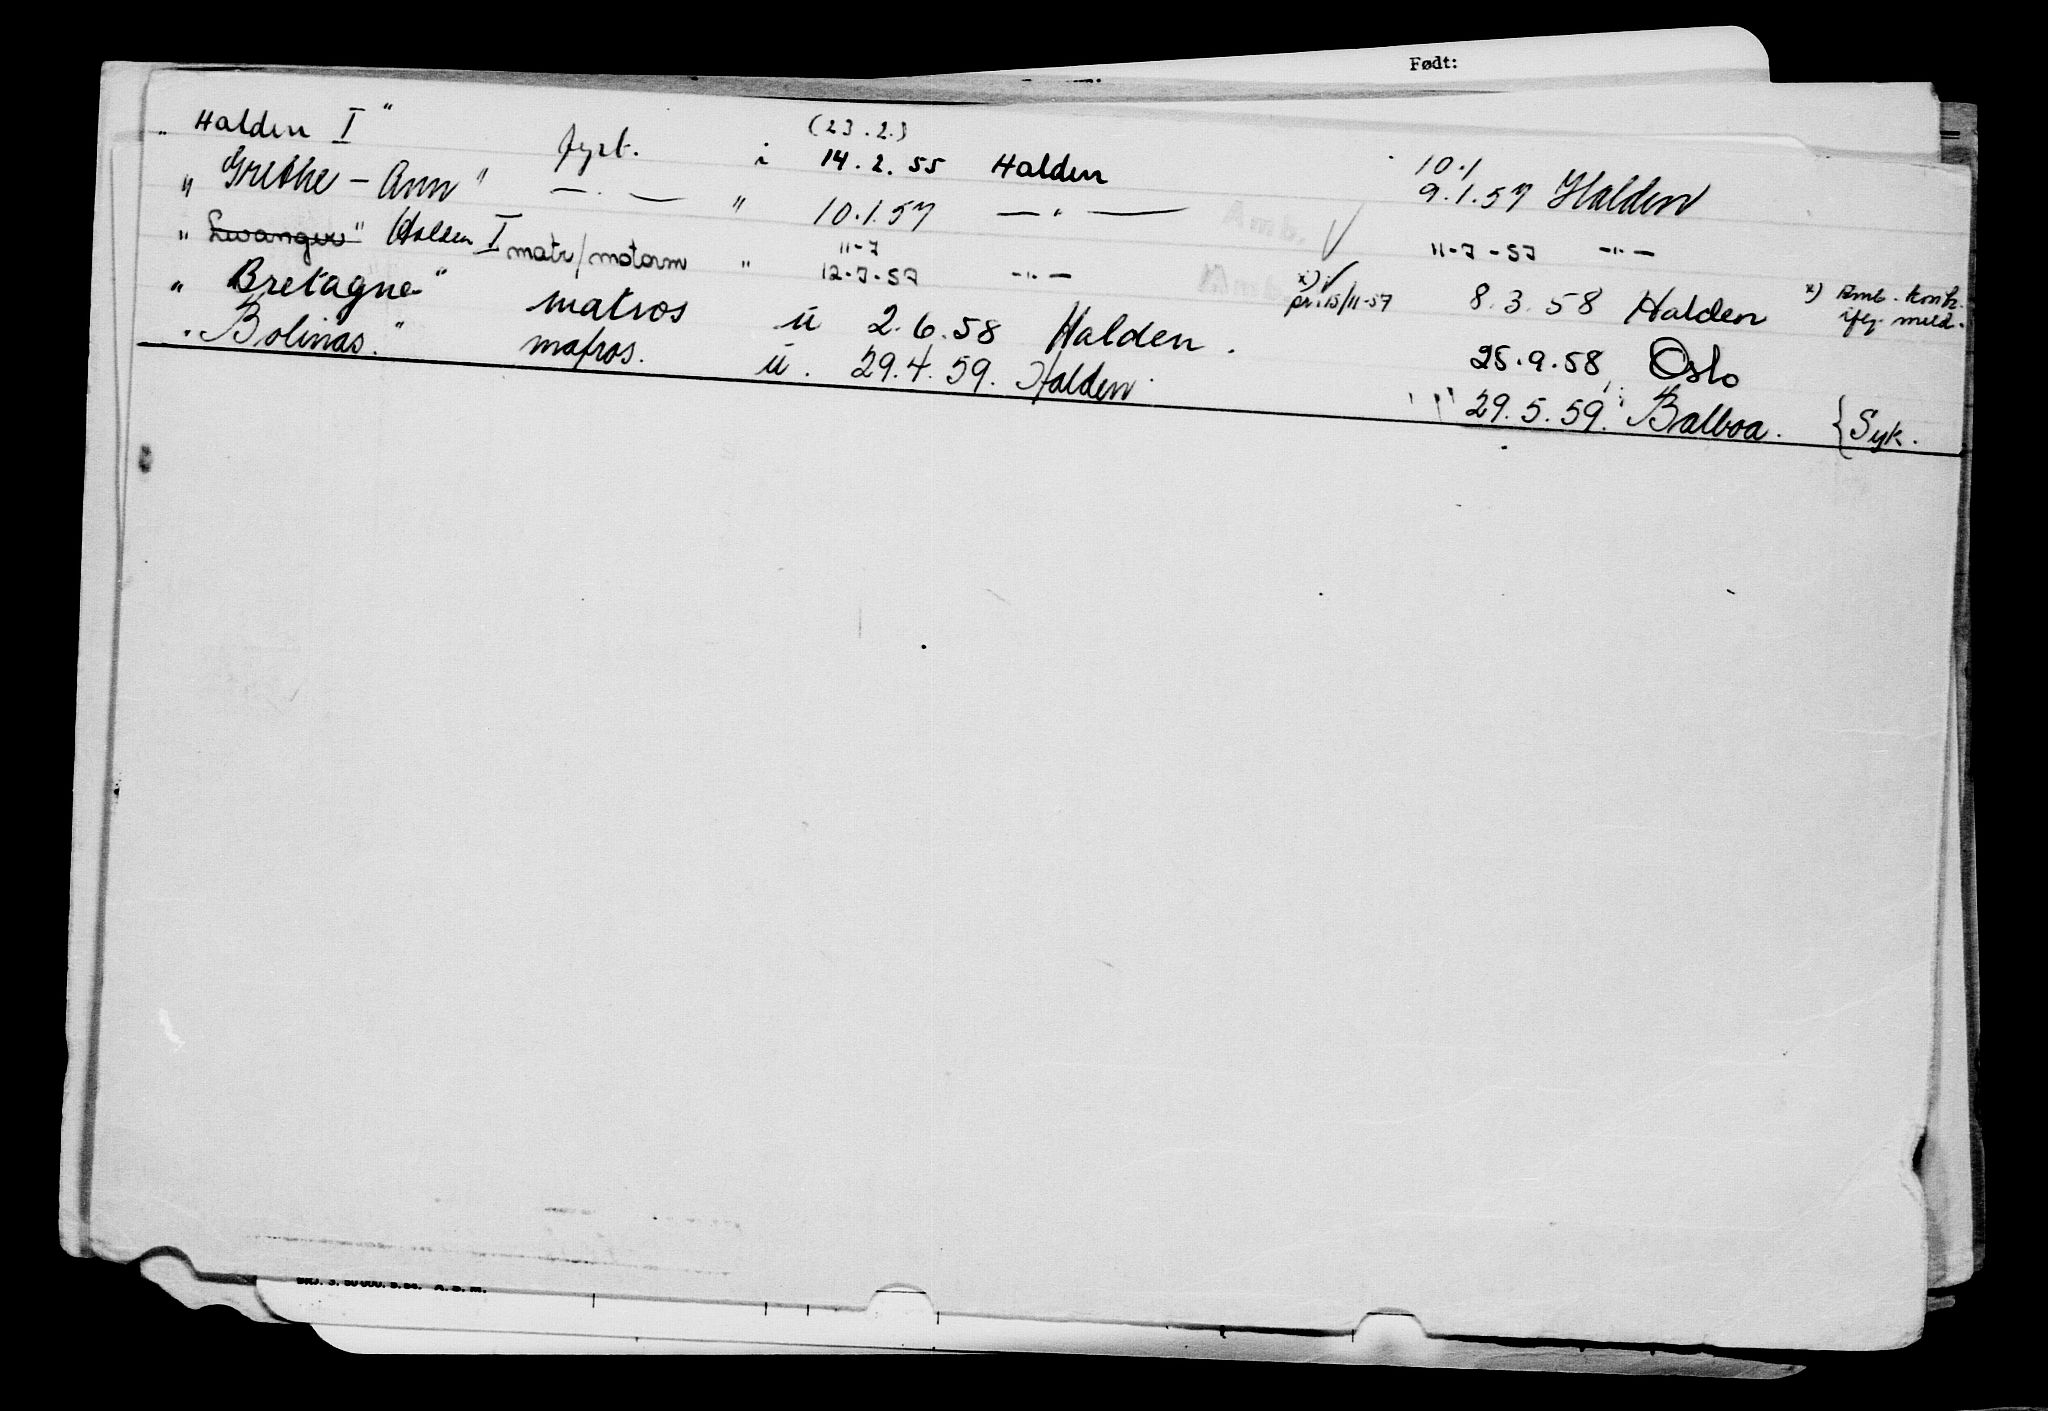 Født:
„ Halden I" fyrb. i (23.2.) 14.2.55 Halden 10.1 9.1.57 Halden
„ Grethe-Ann" — . — " 10.1.57 — " — Amb. √ 11-7-57 —"—
„ Levanger" Halden I matr/motorm " 11-7 12-7-57 —"— x) √ pr. 15/11-57 8.3.58 Halden x) Amb. kontr. iflg. meld.
„ Bretagne" matros u 2.6.58 Halden. 25.9.58 Oslo
„ Bolinas." matros. u. 29.4.59. Halden. 29.5.59. Balboa. {Syk.